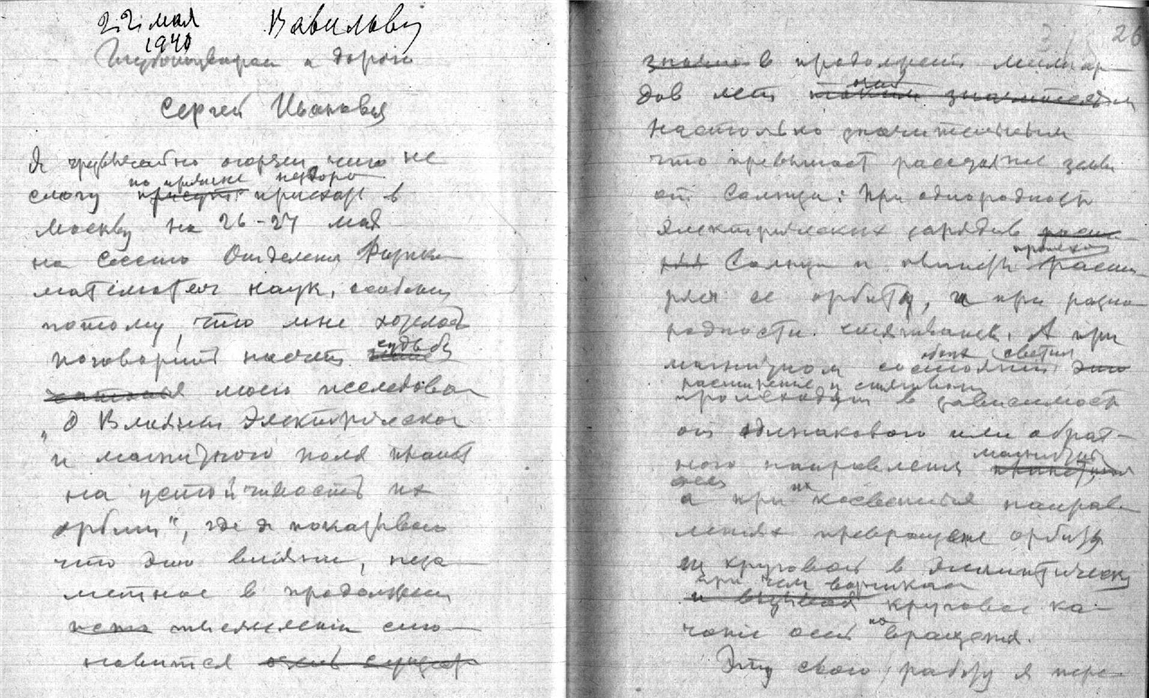 22 мая
1940
Вавилову
Глубокоуважаемый и дорогой
Сергей Иванович
Я чрезвычайно огорчен что не
смогу по причине нездоров приехать в
Москву на 26-27 мая
на Сессию Отделения Физико
математич наук, особенно
потому, что мне хотелось
поговорить насчет судьбы
моего исследован
"О Влиянии Электрического
и магнитного поля планет
на устойчивость их
орбит", где я показываю
что это влияние, неза-
метное в продолжении
тысячелетий стано-
новится
26
в продолжении миллиар-
дов лет
настолько значительным
что превышает расстояние земли
от Солнца: При однородности
Электрических зарядов
Солнца и планеты происход расши-
рение ее орбиты, а при разно-
родности стягивание. А при
магнитном состоянии обоих светил
расширение и стягивание
происходит в зависимости
от одинакового или обрат-
ного направления магнитных
осей
а при их косвенных направ
лениях превращение орбиты
из круговой в Эллиптическую
при чем возникает круговое ка-
чание осей их вращения.
Эту свою работу я пере-